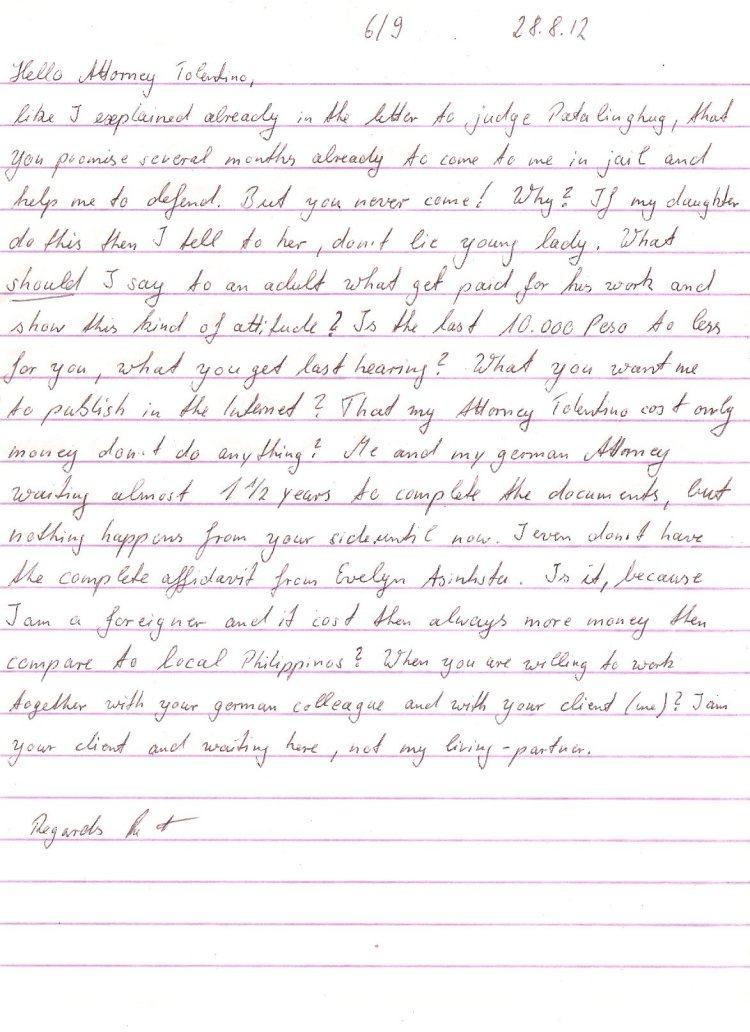 6/9 28.8.12
Hello Attorney Tolentino,
like I explained already in the letter to judge Patalinghug, that
you promise several months already to come to me in jail and
help me to defend. But you never come! Why? If my daughter
do this then I tell to her, don't lie young lady. What
should I say to an adult what get paid for his work and
show this kind of attitude? Is the last 10.000 Peso to less
for you, what you get last hearing? What you want me
to publish in the Internet? That my Attorney Tolentino cost only
money don't do anything? Me and my german Attorney
waiting almost 1 1/2 years to complete the documents, but
nothing happens from your side until now. I even don't have
the complete affidavit from Evelyn . Is it, because
I am a foreigner and it cost then always more money then
compare to local Philippinos? When you are willing to work
together with your german colleague and with your client (me)? I am
your client and waiting here, not my living-partner.
Regards